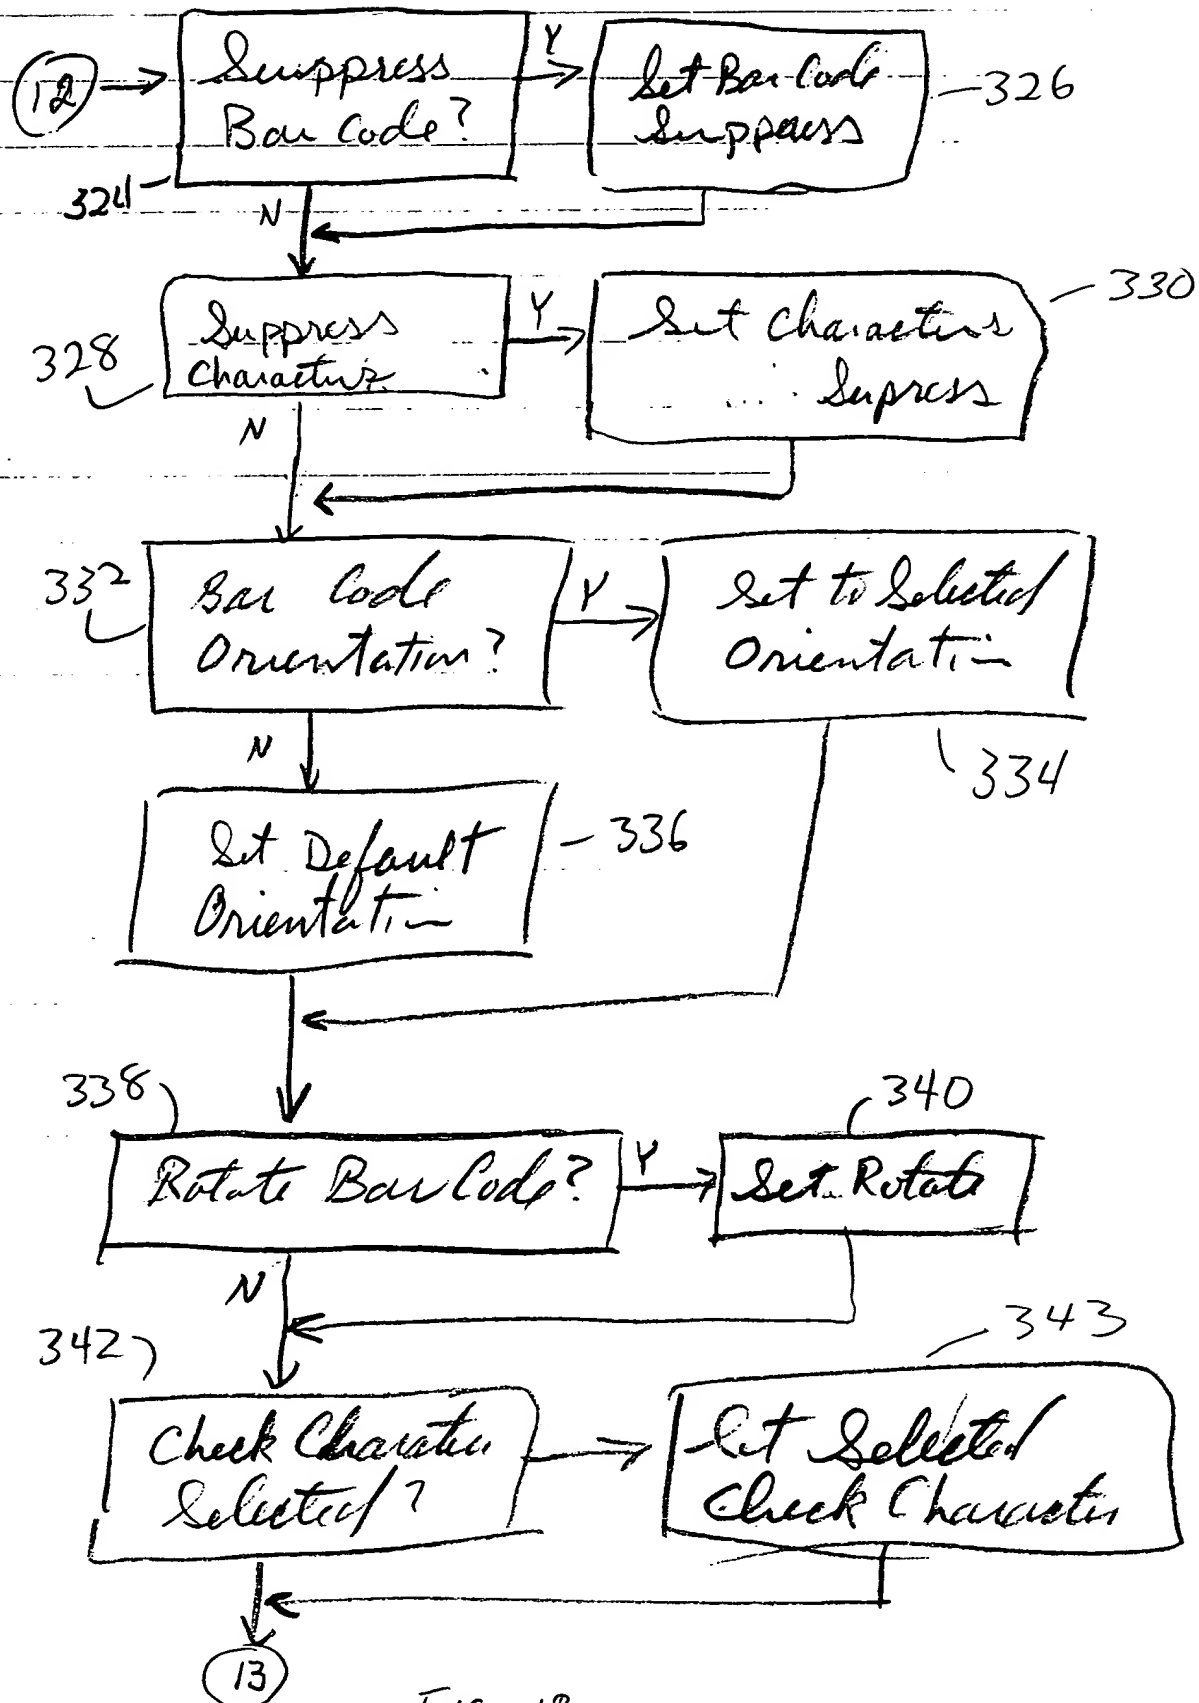 12
Suppress
Bar Code?
Y
Set Bar Code
Suppress
326
324
N
Suppress
Characters
Y
Set Characters
Supress
330
328
N
Bar Code
Orientation?
Y
Set to Selected
Orientation
332
334
N
Set Default
Orientation
336
338
Rotate Bar Code?
Y
Set Rotate
340
N
342
Check Character
Selected?
Set Selected
Check Character
343
13